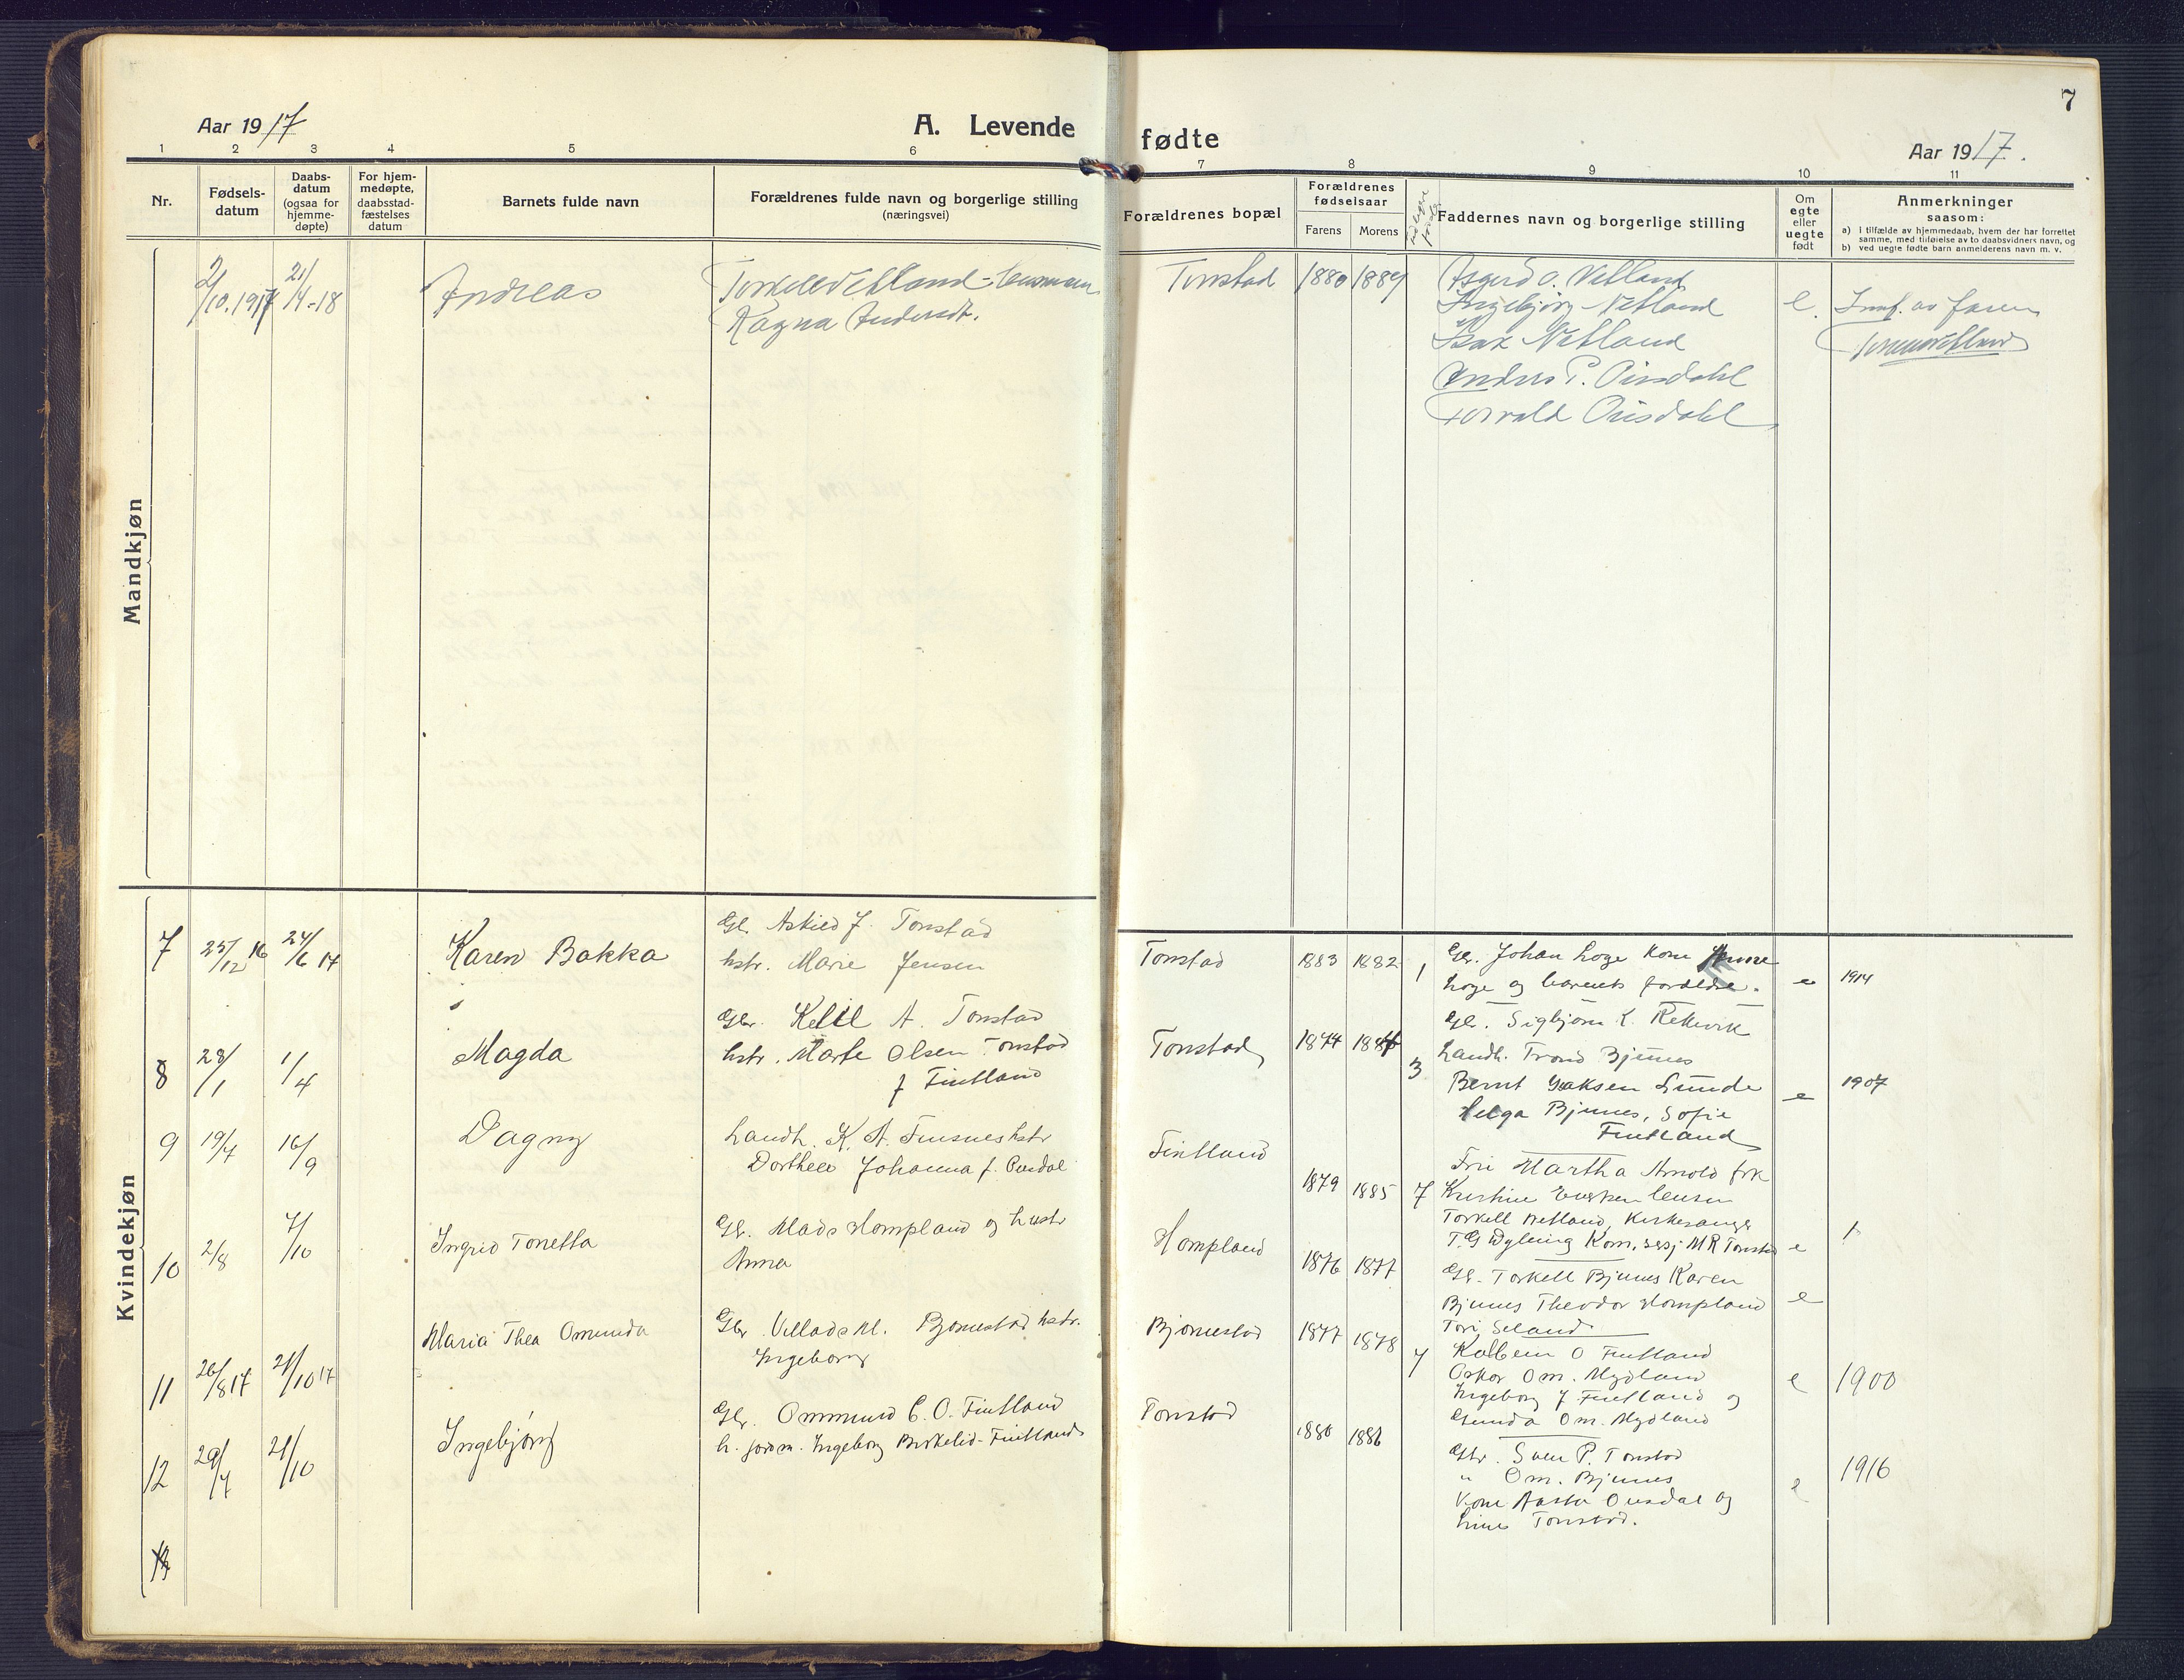 7
Aar 1917
A. Levende fødte
Aar 1917.
1 2 3 4 5 6 7 8 9 10 11
Nr.
Fødsels-
datum
Daabs-
datum
(ogsaa for
hjemme-
døpte)
For hjem-
medøpte,
daabsstad-
fæstelses
datum
Barnets fulde navn
Forældrenes fulde navn og borgerlige stilling
(næringsvei)
Forældrenes bopæl
Forældrenes
fødselsaar
Farens Morens
Faddernes navn og borgerlige stilling
Om
egte
eller
uegte
født
Anmerkninger
saasom:
a) I tilfælde av hjemmedaab, hvem der har forrettet
samme, med tilføielse av to daabsvidners navn, og
b) ved uegte fødte barn anmelderens navn m. v.
Mandkjøn
2/10.1917 21/14-18 Andreas
Torkell Netland - lensmann
Ragna Andersdt.
Tonstad 1880 1889
Asgerd O. Netland
Ingebjørg Netland
Isak Netland
Anders P. Ousdahl
Torvald Ousdahl
e.
Innf. av faren
Kvindekjøn
7 25/12 16 24/6 17 Karen Bakka
Gb. Askild J. Tonstad
hstr. Marie Jensen
Tonstad 1883 1882 1
Gb. Johan Loge Kone
Loge og barnets forældre.
e 1914
8 28/1 1/4 Magda
Gbr. Ketil A. Tonstad
hstr. Marte Olsen Tonstad
f Fintland
Tonstad 1874 3
Gb. Sigbjørn K. Rekevik
Landh. Trond Bjunes
Bernt Isaksen Sunde
Helga Bjunes, Sofie
Fintland
e 1907
9 19/4 16/9 Dagny
Landh. K. A. Finsnes hstr
Dorthea Johanna f. Ousdal
Fintland 1879 1885 7
Fru Martha Arnold frk
Kristine
Torkell Netland, Kirkesanger
T. G Kom. M R Tonstad
e 1
10 2/8 7/10 Ingrid Tonetta
Gb. Mads Hompland og hustr
Anna
Hompland 1876 1877
Gb. Torkell Bjunes Karen
Bjunes Theodor Hompland
Tori Seland
e
11 26/8 17 21/10 17 Maria Thea Omunda
Gbr. Villads M. Bjørnestad hstr.
Ingeborg
Bjørnestad 1877 1878 7
Kolbein O Fintland
Oskar Om. Mydland
Ingeborg J Fintland og
Gunda Om. Mydland
e 1900
12 29/7 21/10 Ingebjørg
Gbr. Ommund C. O. Fintland
h. jordm. Ingeborg Birkelid-Fintland
Tonstad 1880 1886
Gbr. Sven P. Tonstad
" Om. Bjunes
Kone Aasta Ousdal og
Line Tonstad.
e 1916